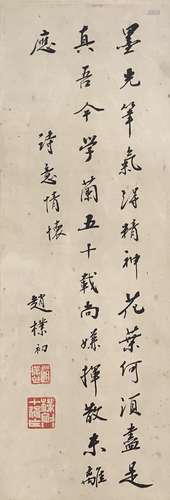 墨先筆氣得精神花葉何須盡是
真吾今學蘭五十載尚嫌揮散未離
應
詩意情懷
趙樸初